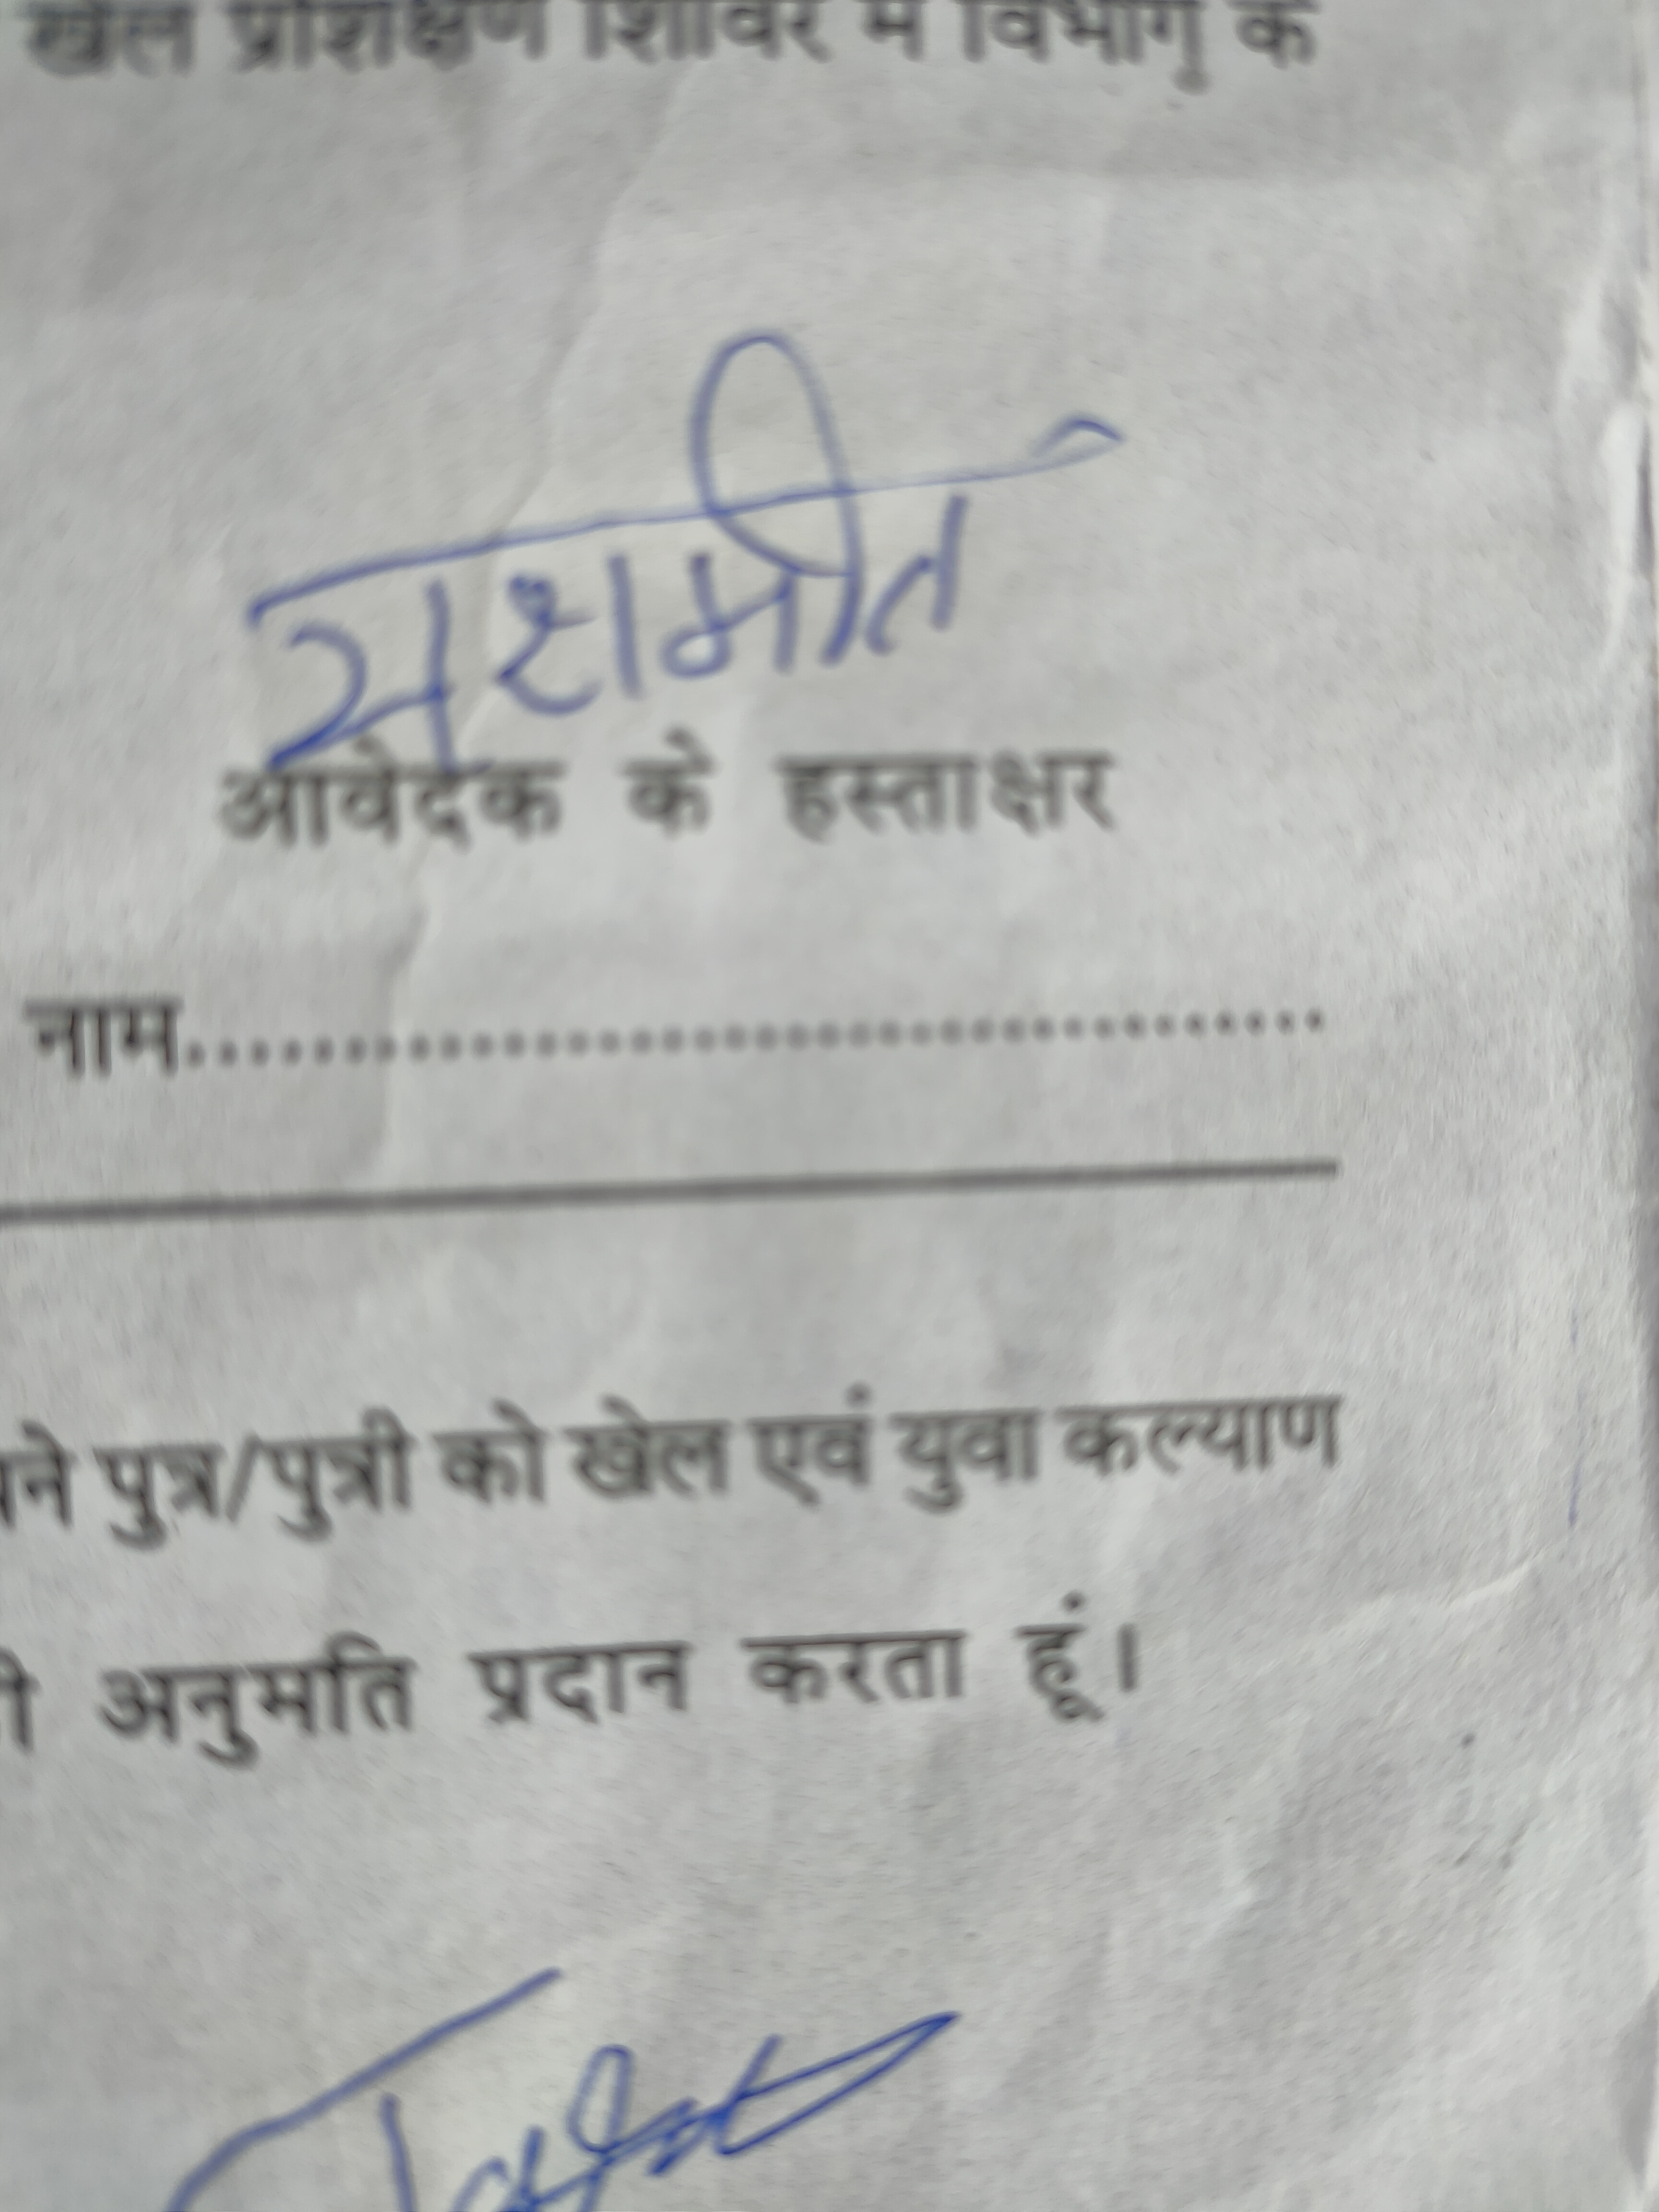 खेल प्रशिक्षण शिविर में विभाग के
यशमीत
आवेदक के हस्ताक्षर
नाम.....................................
पुत्र/पुत्री को खेल एवं युवा कल्याण
अनुमति प्रदान करता हूं।